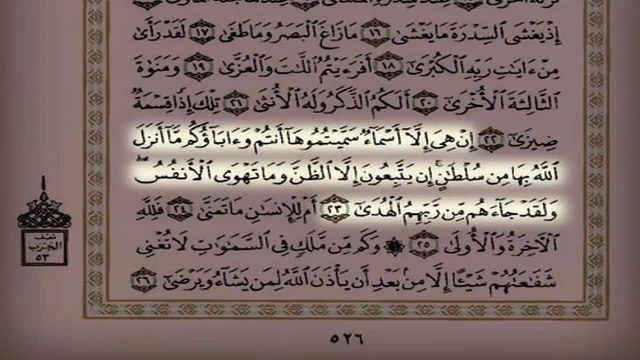 إِذْ يَغْشَى ٱلسِّدْرَةَ مَا يَغْشَىٰ ١٦ مَا زَاغَ ٱلْبَصَرُ وَمَا طَغَىٰ ١٧ لَقَدْ رَأَىٰ
مِنْ ءَايَٰتِ رَبِّهِ ٱلْكُبْرَىٰٓ ١٨ أَفَرَءَيْتُمُ ٱللَّٰتَ وَٱلْعُزَّىٰ ١٩ وَمَنَوٰةَ
ٱلثَّالِثَةَ ٱلْأُخْرَىٰٓ ٢٠ أَلَكُمُ ٱلذَّكَرُ وَلَهُ ٱلْأُنثَىٰ ٢١ تِلْكَ إِذًا قِسْمَةٌ
ضِيزَىٰٓ ٢٢ إِنْ هِىَ إِلَّآ أَسْمَآءٌ سَمَّيْتُمُوهَآ أَنتُمْ وَءَابَآؤُكُم مَّآ أَنزَلَ
ٱللَّهُ بِهَا مِن سُلْطَٰنٍ ۚ إِن يَتَّبِعُونَ إِلَّا ٱلظَّنَّ وَمَا تَهْوَى ٱلْأَنفُسُ ۖ
وَلَقَدْ جَآءَهُم مِّن رَّبِّهِمُ ٱلْهُدَىٰٓ ٢٣ أَمْ لِلْإِنسَٰنِ مَا تَمَنَّىٰ ٢٤ فَلِلَّهِ
ٱلْءَاخِرَةُ وَٱلْأُولَىٰ ٢٥ ۞ وَكَم مِّن مَّلَكٍ فِى ٱلسَّمَٰوَٰتِ لَا تُغْنِى
شَفَٰعَتُهُمْ شَيْـًٔا إِلَّا مِنۢ بَعْدِ أَن يَأْذَنَ ٱللَّهُ لِمَن يَشَآءُ وَيَرْضَىٰٓ ٢٦
نصف
الحزب
٥٣
٥٢٦